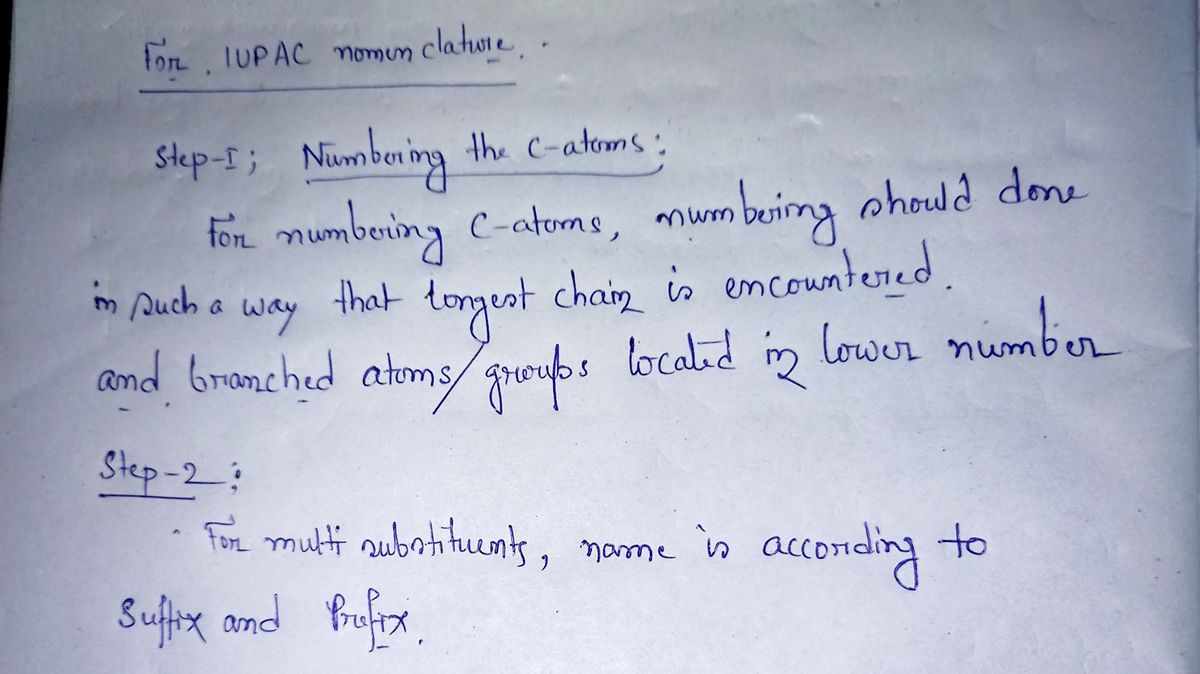 For IUPAC nomenclature.
Step-I; Numbering the C-atoms:
For numbering C-atoms, numbering should done
in such a way that longest chain is encountered.
and branched atoms/groups located in lower number
Step-2:
For multi substituents, name is according to
Suffix and Prefix.